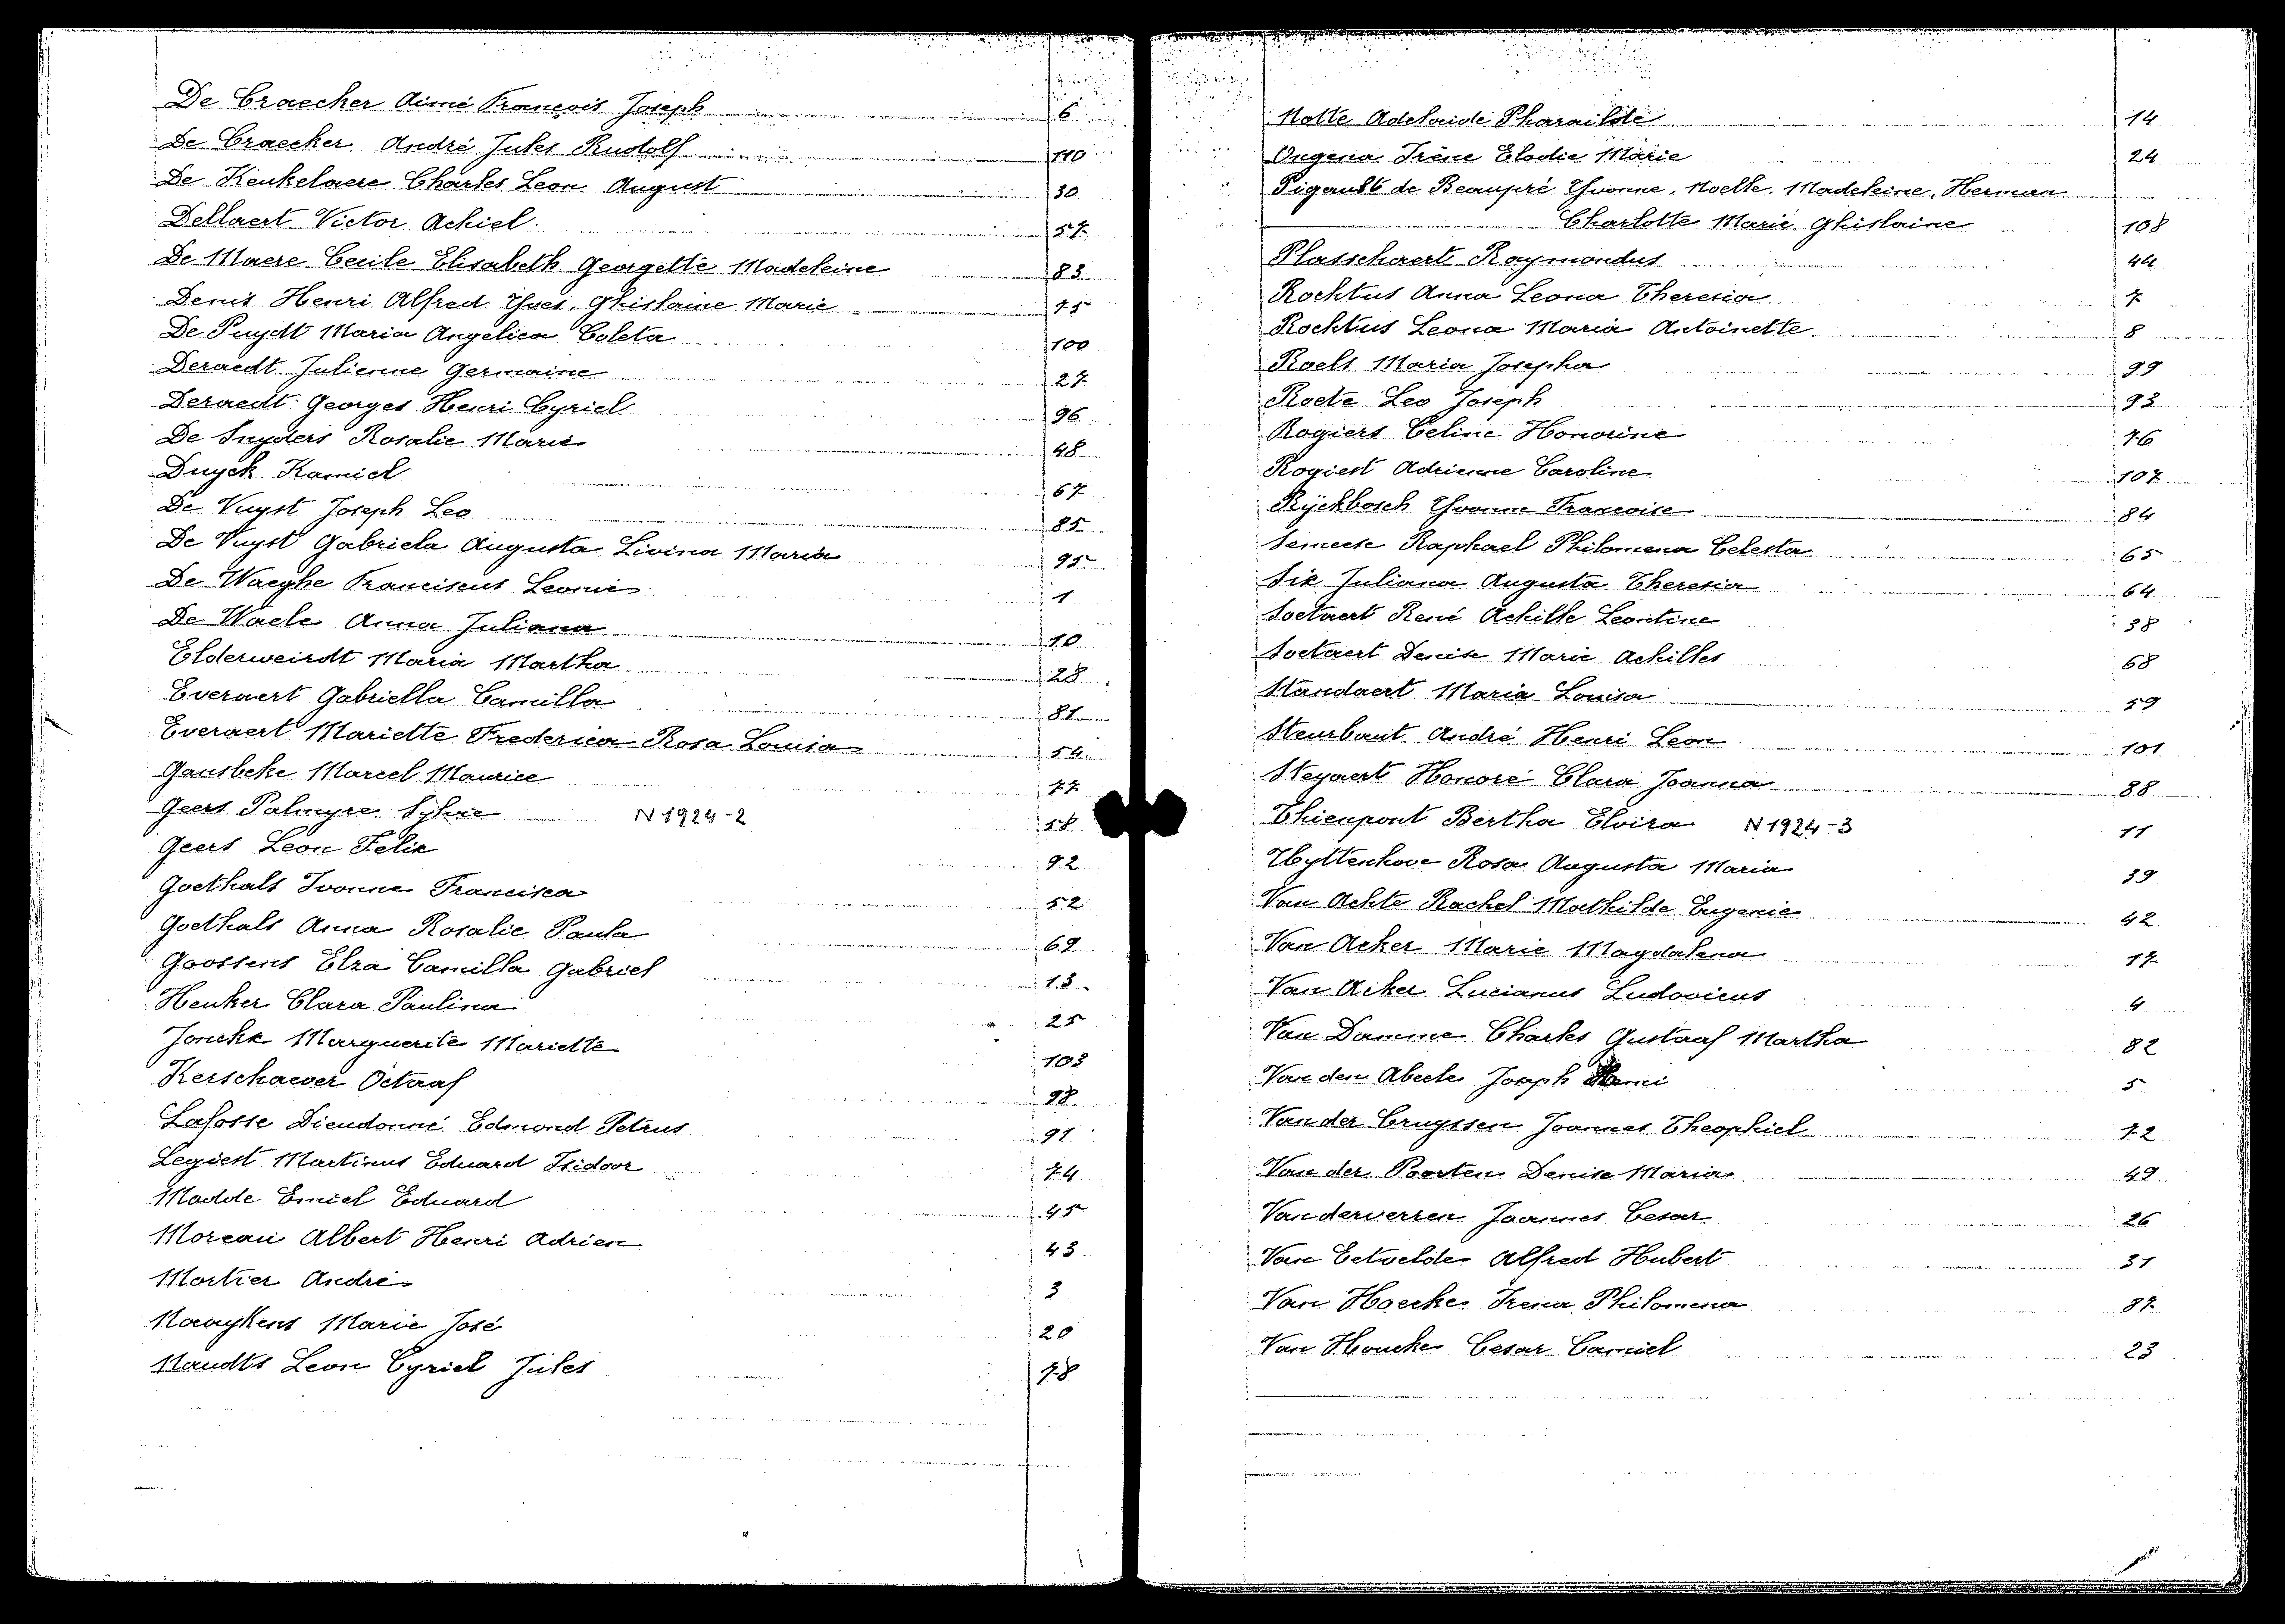 De Craecker Aimé François Joseph 6
De Craecker André Jules Rudolf 110
De Keukelaere Charles Leon August 30
Dellaert Victor Achiel 57
De Maere Cecile Elisabeth Georgette Madeleine 83
Denis Henri Alfred Yves Ghislaine Marie 75
De Puydt Maria Angelica Coleta 100
Deraedt Julienne Germaine 27
Deraedt Georges Henri Cyriel 96
De Snyders Rosalie Marie 48
Duyck Kamiel 67
De Vuyst Joseph Leo 85
De Vuyst Gabriela Augusta Livina Maria 95
De Waeghe Franciscus Leonie 1
De Waele Anna Juliana 10
Elderweirdt Maria Martha 28
Everaert Gabriella Camilla 81
Everaert Mariette Frederica Rosa Louisa 54
Gansbeke Marcel Maurice 77
Geers Palmyre Sylvie N 1924-2 58
Geers Leon Felix 92
Goethals Ivonne Francisca 52
Goethals Anna Rosalie Paula 69
Goossens Elza Camilla Gabriel 13
Heuker Clara Paulina 25
Jonckx Marguerite Mariette 103
Kerschaever Octaaf 98
Lafosse Dieudonné Edmond Petrus 91
Legiest Martinus Eduard Isidoor 74
Madde Emiel Eduard 45
Moreau Albert Henri Adrien 43
Mortier André 3
Naaykens Marie José 20
Naudts Leon Cyriel Jules 78
Notte Adelaide Pharailde 14
Ongena Irène Elodie Marie 24
Pigault de Beaupré Yvonne, Noelle, Madeleine, Herman
Charlotte Marie Ghislaine 108
Plasschaert Raymondus 44
Rochtus Anna Leona Theresia 7
Rochtus Leona Maria Antoinette 8
Roels Maria Josepha 99
Roete Leo Joseph 93
Rogiers Celine Honorine 76
Rogiest Adrienne Caroline 107
Rÿckbosch Yvonne Francoise 84
Semeese Raphael Philomena Celesta 65
Six Juliana Augusta Theresia 64
Soetaert René Achille Leontine 38
Soetaert Denise Marie Achilles 68
Standaert Maria Louisa 59
Steurbaut André Henri Leon 101
Steyaert Honoré Clara Joanna 88
Thienpont Bertha Elvira N 1924-3 11
Uyttenhove Rosa Augusta Maria 39
Van Achte Rachel Mathilde Eugenie 42
Van Acker Marie Magdalena 17
Van Acker Lucianus Ludovicus 4
Van Damme Charles Gustaaf Martha 82
Van den Abeele Joseph Remi 5
Van der Cruyssen Joannes Theophiel 72
Van der Poorten Denise Maria 49
Vanderverren Joannes Cesar 26
Van Eetvelde Alfred Hubert 31
Van Haecke Irena Philomena 87
Van Houcke Cesar Camiel 23